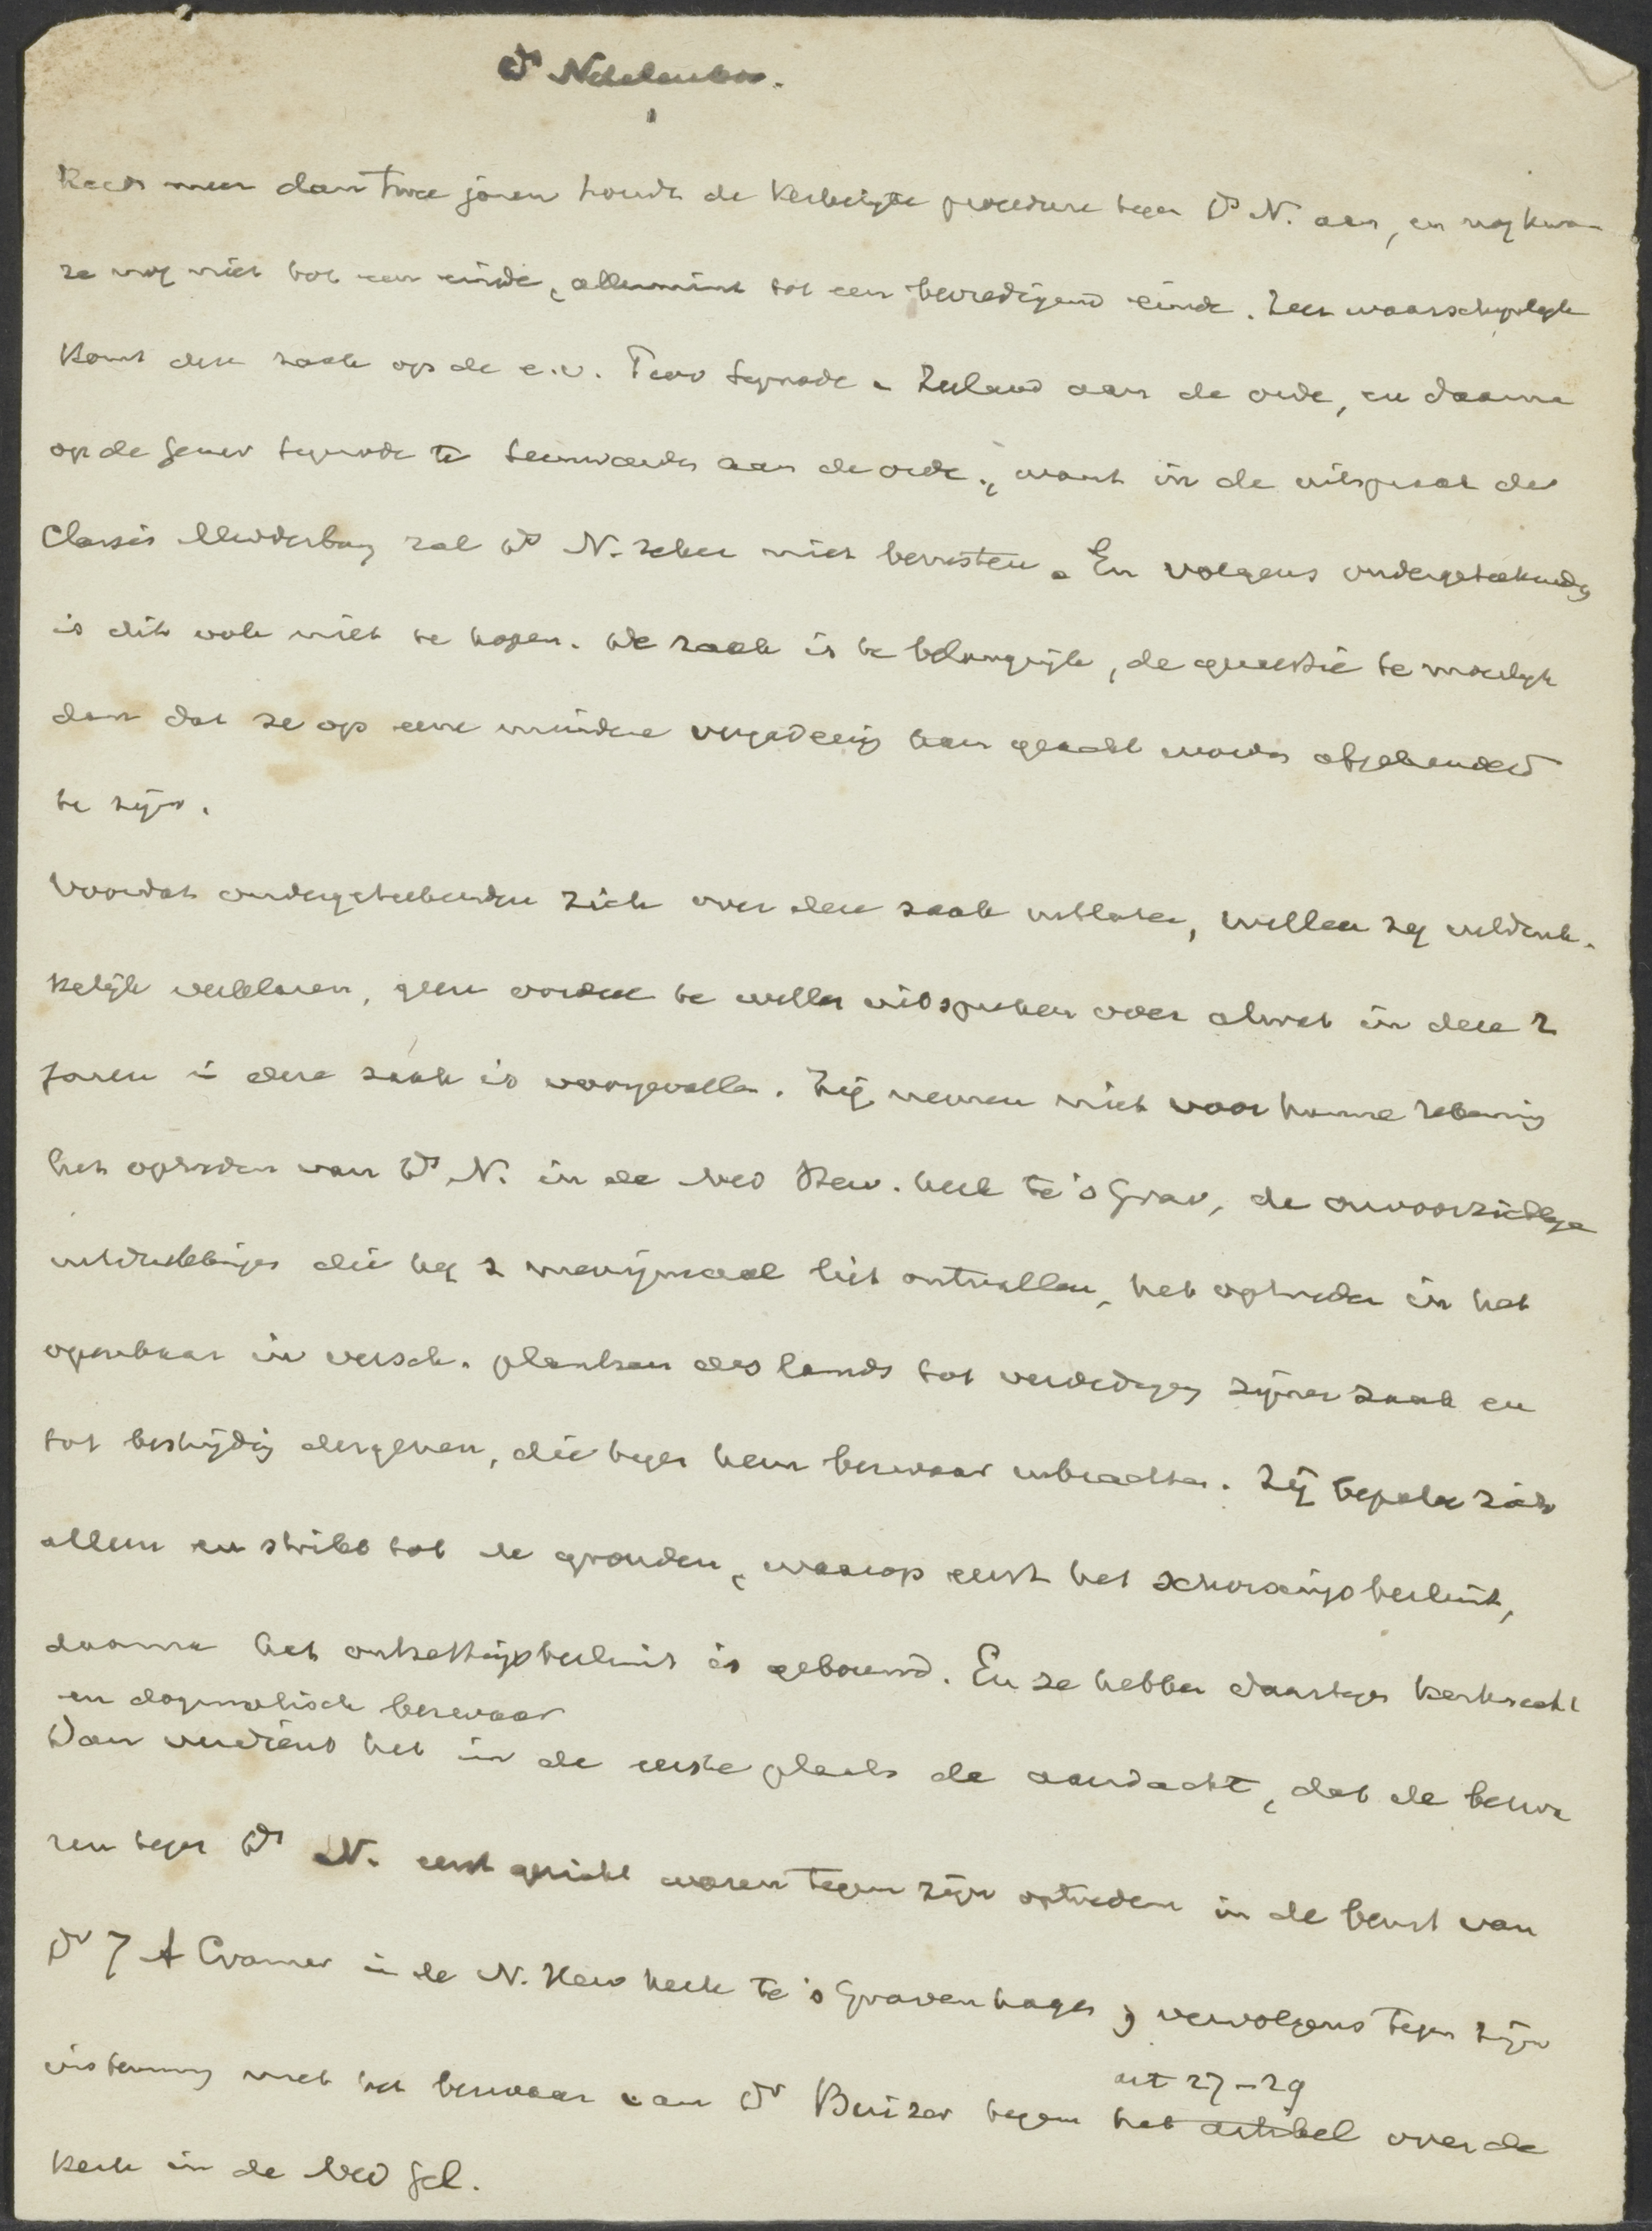 Ds Netelenbos.
Reeds meer dan twee jaren houdt de kerkelijke procedure tegen Ds N. aan, en nog kwam
ze nog niet tot een einde, allerminst tot een bevredigend einde. Zeer waarschijnlijk
komt deze zaak op de e.v. Prov Synode v. Zeeland aan de orde, en daarna
op de Gener Synode te Leeuwarden aan de orde., want in de uitspraak der
Classis Middelburg zal Ds N. zeker niet berusten. En volgens ondergeteekenden
is dit ook niet te hopen. De zaak is te belangrijk, de quaestie te moeilijk
dan dat ze op eene mindere vergadering kan geacht worden afgehandeld
te zijn.
Voordat ondergeteekenden zich over deze zaak uitlaten, willen zij uitdruk-
kelijk verklaren, geen oordeel te willen uitspreken over alwat in deze 2
jaren in deze zaak is voorgevallen. Zij nemen niet voor hunne rekening
het optreden van Ds N. in de Ned Herv. kerk te 's Grav, de onvoorzichtige
uitdrukkingen die hij z menigmaal liet ontvallen, het optreden in het
openbaar in versch. plaatsen des lands tot verdediging zijner zaak en
tot bestrijding dergenen, die tegen hem bezwaar inbrachten. Zij bepalen zich
alleen en strikt tot de gronden, waarop eerst het schorsingsbesluit,
daarna het ontzettingsbesluit is gebouwd. En ze hebben daartegen kerkrecht
en dogmatisch bezwaar
Dan verdient het in de eerste plaats de aandacht, dat de bezwa
ren tegen Ds N. eerst gericht waren tegen zijn optreden in de beurt van
Dr J A Cramer in de N. Herv kerk te 's Gravenhage, vervolgens tegen zijn
instemming met het bezwaar van Dr Buizer tegen het artikel art 27-29 over de
kerk in de Ned Gel.